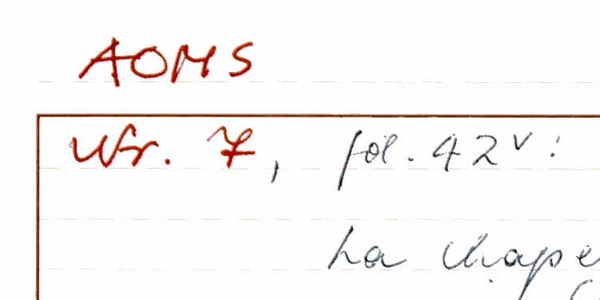 AOMS
Nr. 7, fol. 42v:
La chape